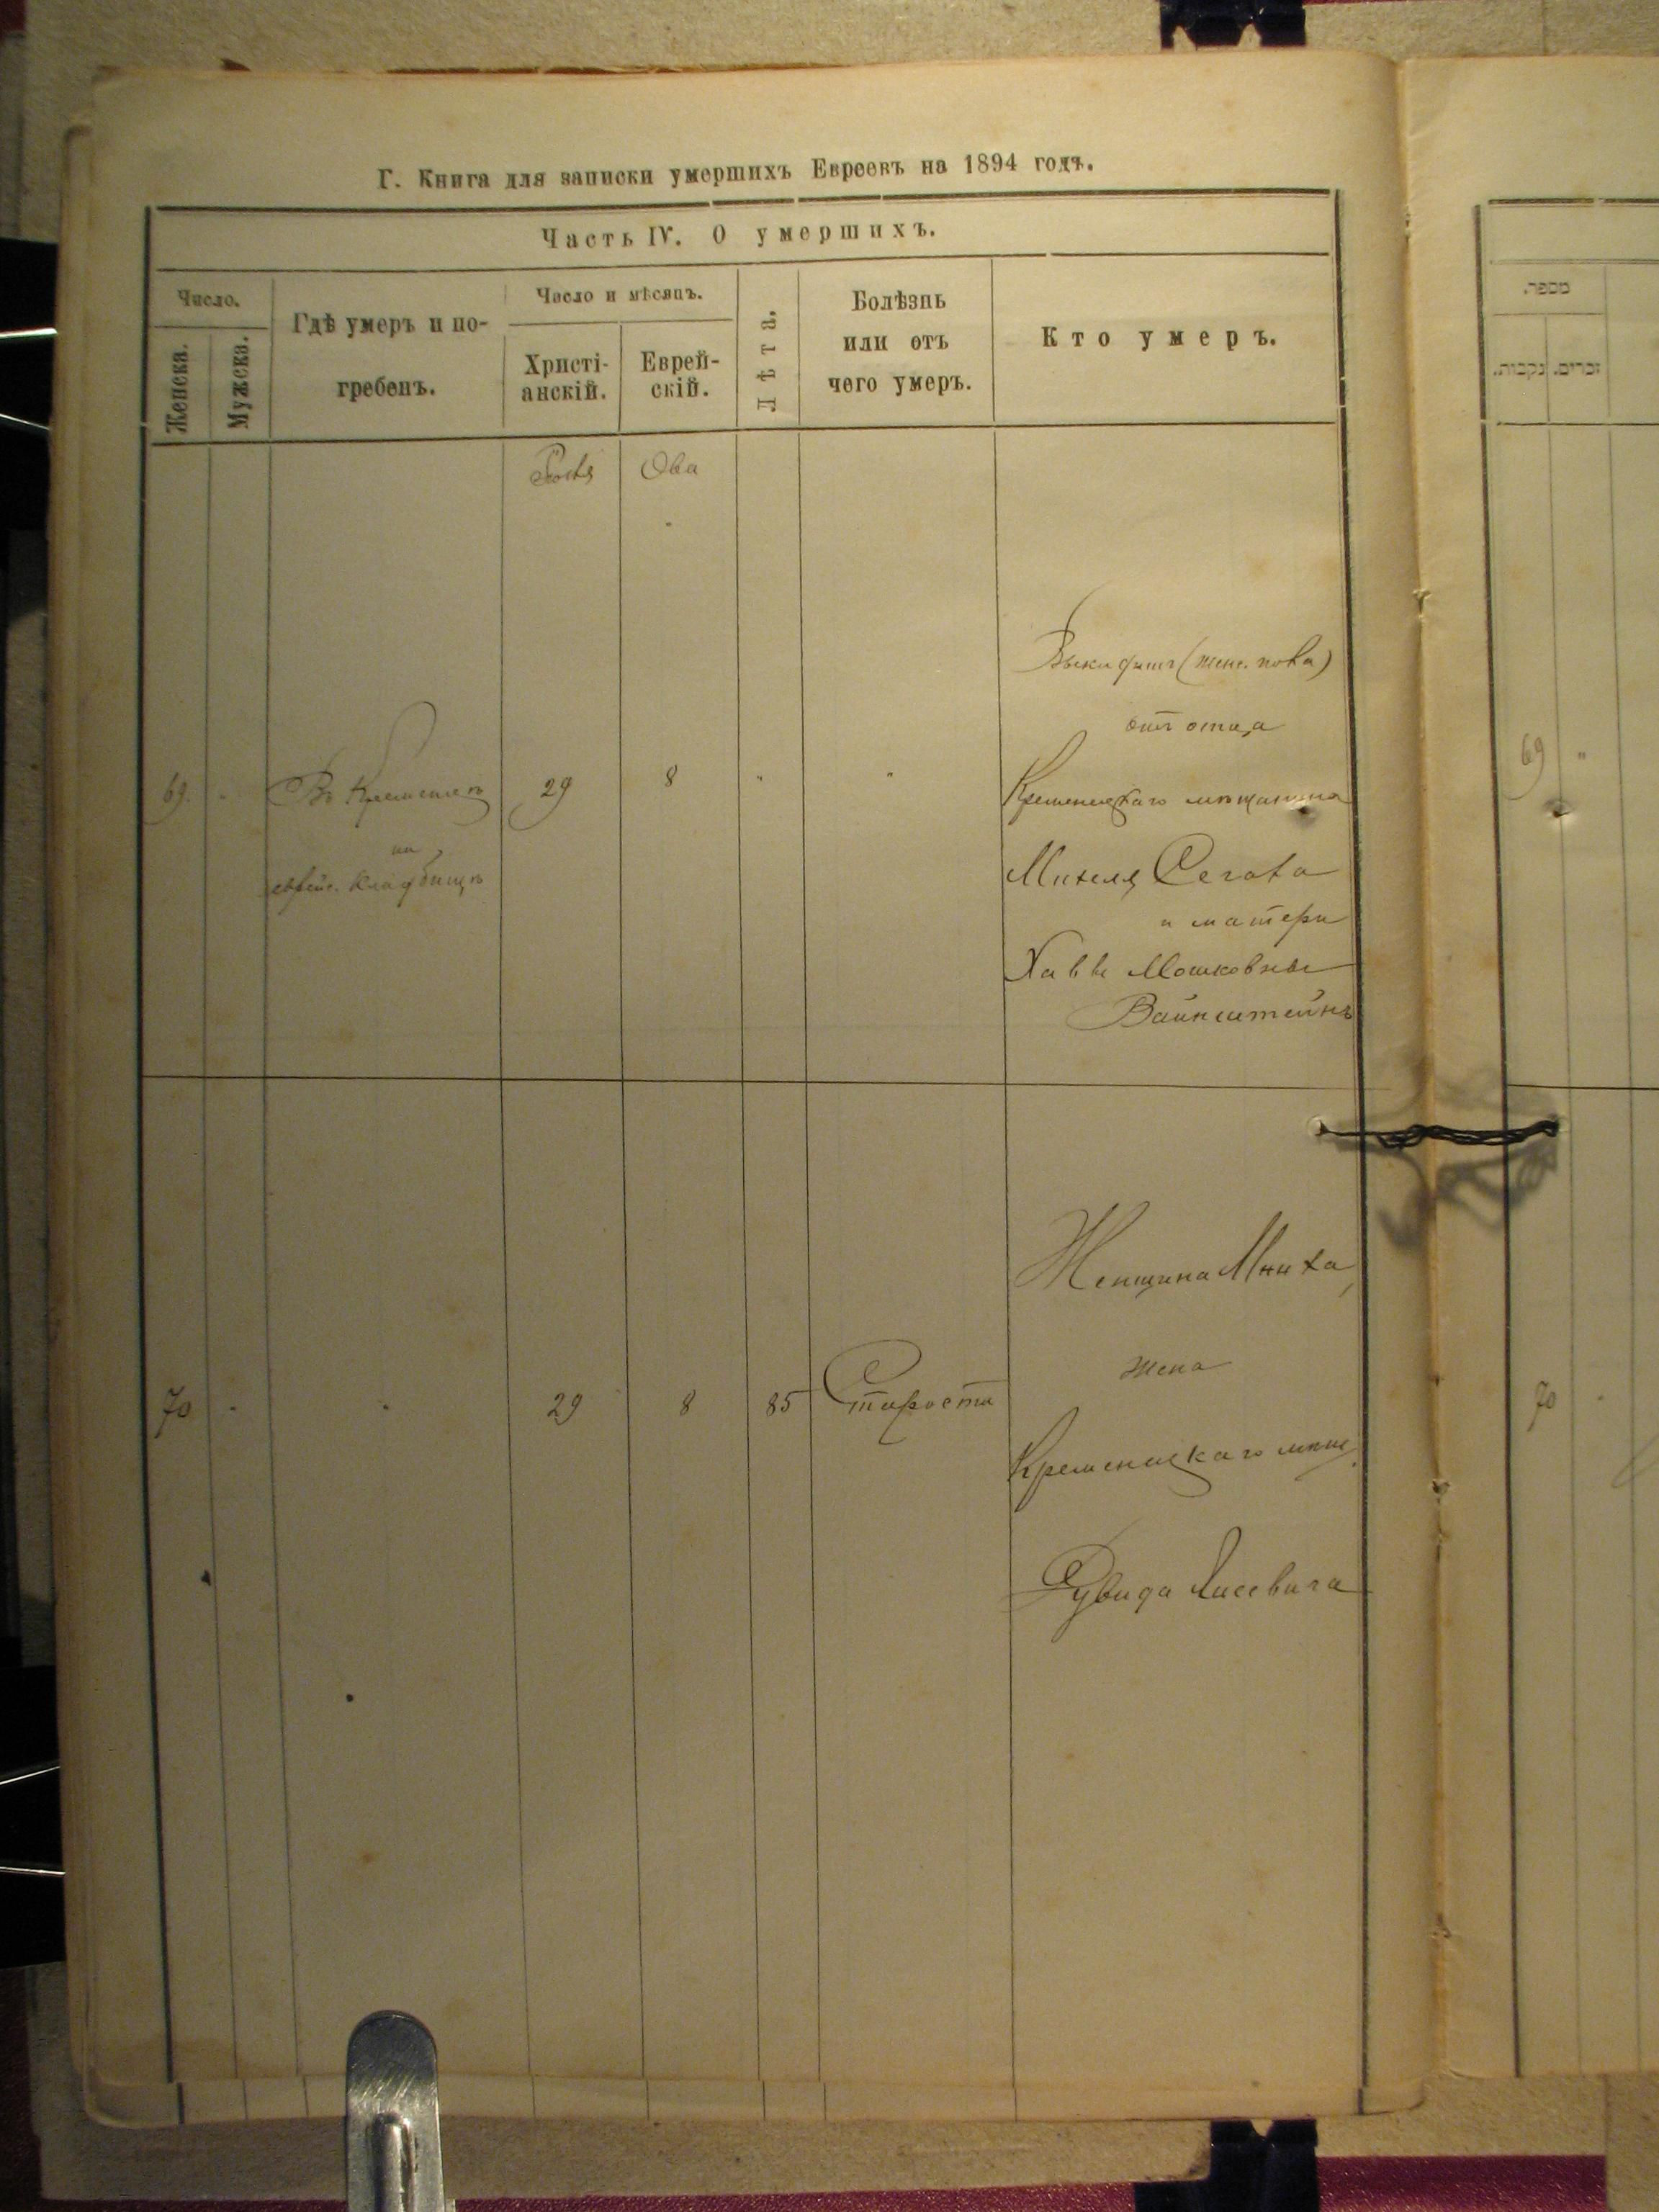 Г. Книга для записки умершихъ Евреевъ на 1894 годъ.
Часть IV. О умершихъ.
Число.
Женска.
Мужска.
Гдѣ умеръ и по-
гребенъ.
Число и мѣсяцъ.
Христі-
анскій.
Еврей-
скій.
Лѣта.
Болѣзнь
или отъ
чего умеръ.
Кто умеръ.
Ова
69.
Въ Кременцѣ
на
еврейс. кладбищѣ
29
8
Выкидышъ (женс. пола)
отъ отца
Кременецкаго мѣщанина
Михеля Сегала
и матери
Хаввы Мошковны
Вайнштейнъ
70
29
8
85
Старости
Женщина
жена
Кременецкаго мѣщ.
מספר.
זכרים.
נקבות.
69
70